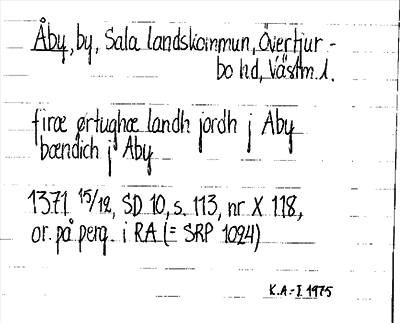 Åby, by, Sala landskommun, Övertjur-
bo hd, Västm. l.
firæ ørtughæ landh jordh j Aby
bændich j Aby
1371 15/12, SD 10, s. 113, nr X 118,
or. på perg. i RA (= SRP 1024)
K.A.-I. 1975